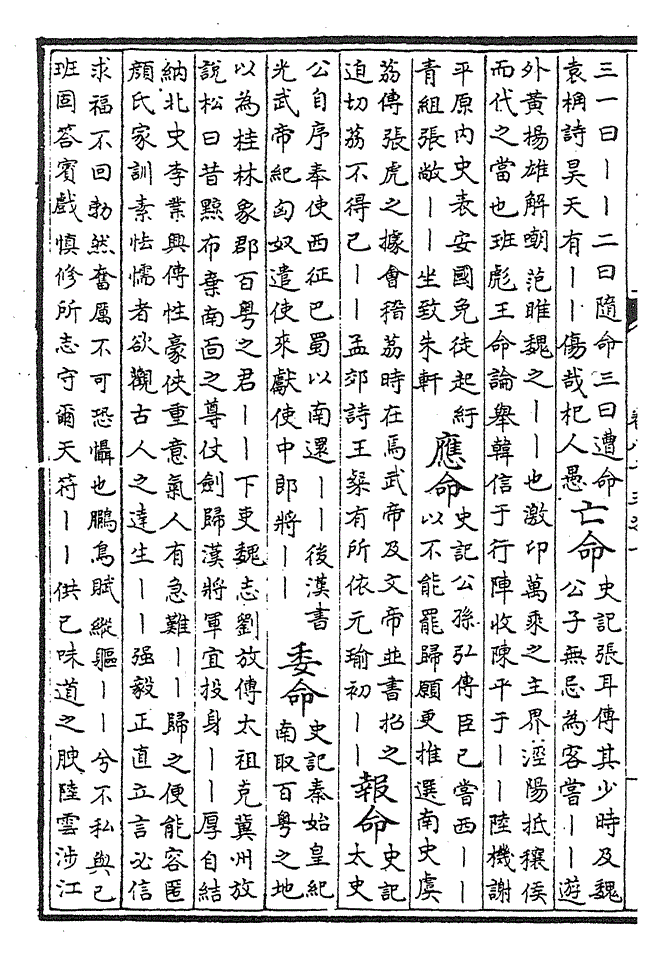 三一曰丨丨二曰隨命三曰遭命
袁桷詩昊天有丨丨傷哉杞人愚
亡命
史記張耳傳其少時及魏
公子無忌為客嘗丨丨遊
外黃揚雄解嘲范睢魏之丨丨也激卬萬乘之主界涇陽抵穰侯
而代之當也班彪王命論舉韓信于行陣收陳平于丨丨陸機謝
平原內史表安國免徒起紆
青組張敞丨丨坐致朱軒
應命
史記公孫弘傳臣已嘗西丨丨
以不能罷歸願更推選南史虞
荔傳張虎之據會稽荔時在焉武帝及文帝並書招之
迫切荔不得已丨丨孟郊詩王粲有所依元瑜初丨丨
報命
史記
太史
公自序奉使西征巴蜀以南還丨丨後漢書
光武帝紀匈奴遣使來獻使中郎將丨丨
委命
史記秦始皇紀
南取百粵之地
以為桂林象郡百粵之君丨丨下吏魏志劉放傳太祖克冀州放
說松曰昔黥布棄南面之尊仗劍歸漢將軍宜投身丨丨厚自結
納北史李業興傳性豪俠重意氣人有急難丨丨歸之便能容匿
顏氏家訓素怯懦者欲觀古人之達生丨丨强毅正直立言必信
求福不回勃然奮厲不可恐懾也鵩鳥賦縱軀丨丨兮不私與己
班固答賓戲慎修所志守爾天符丨丨供己味道之腴陸雲涉江